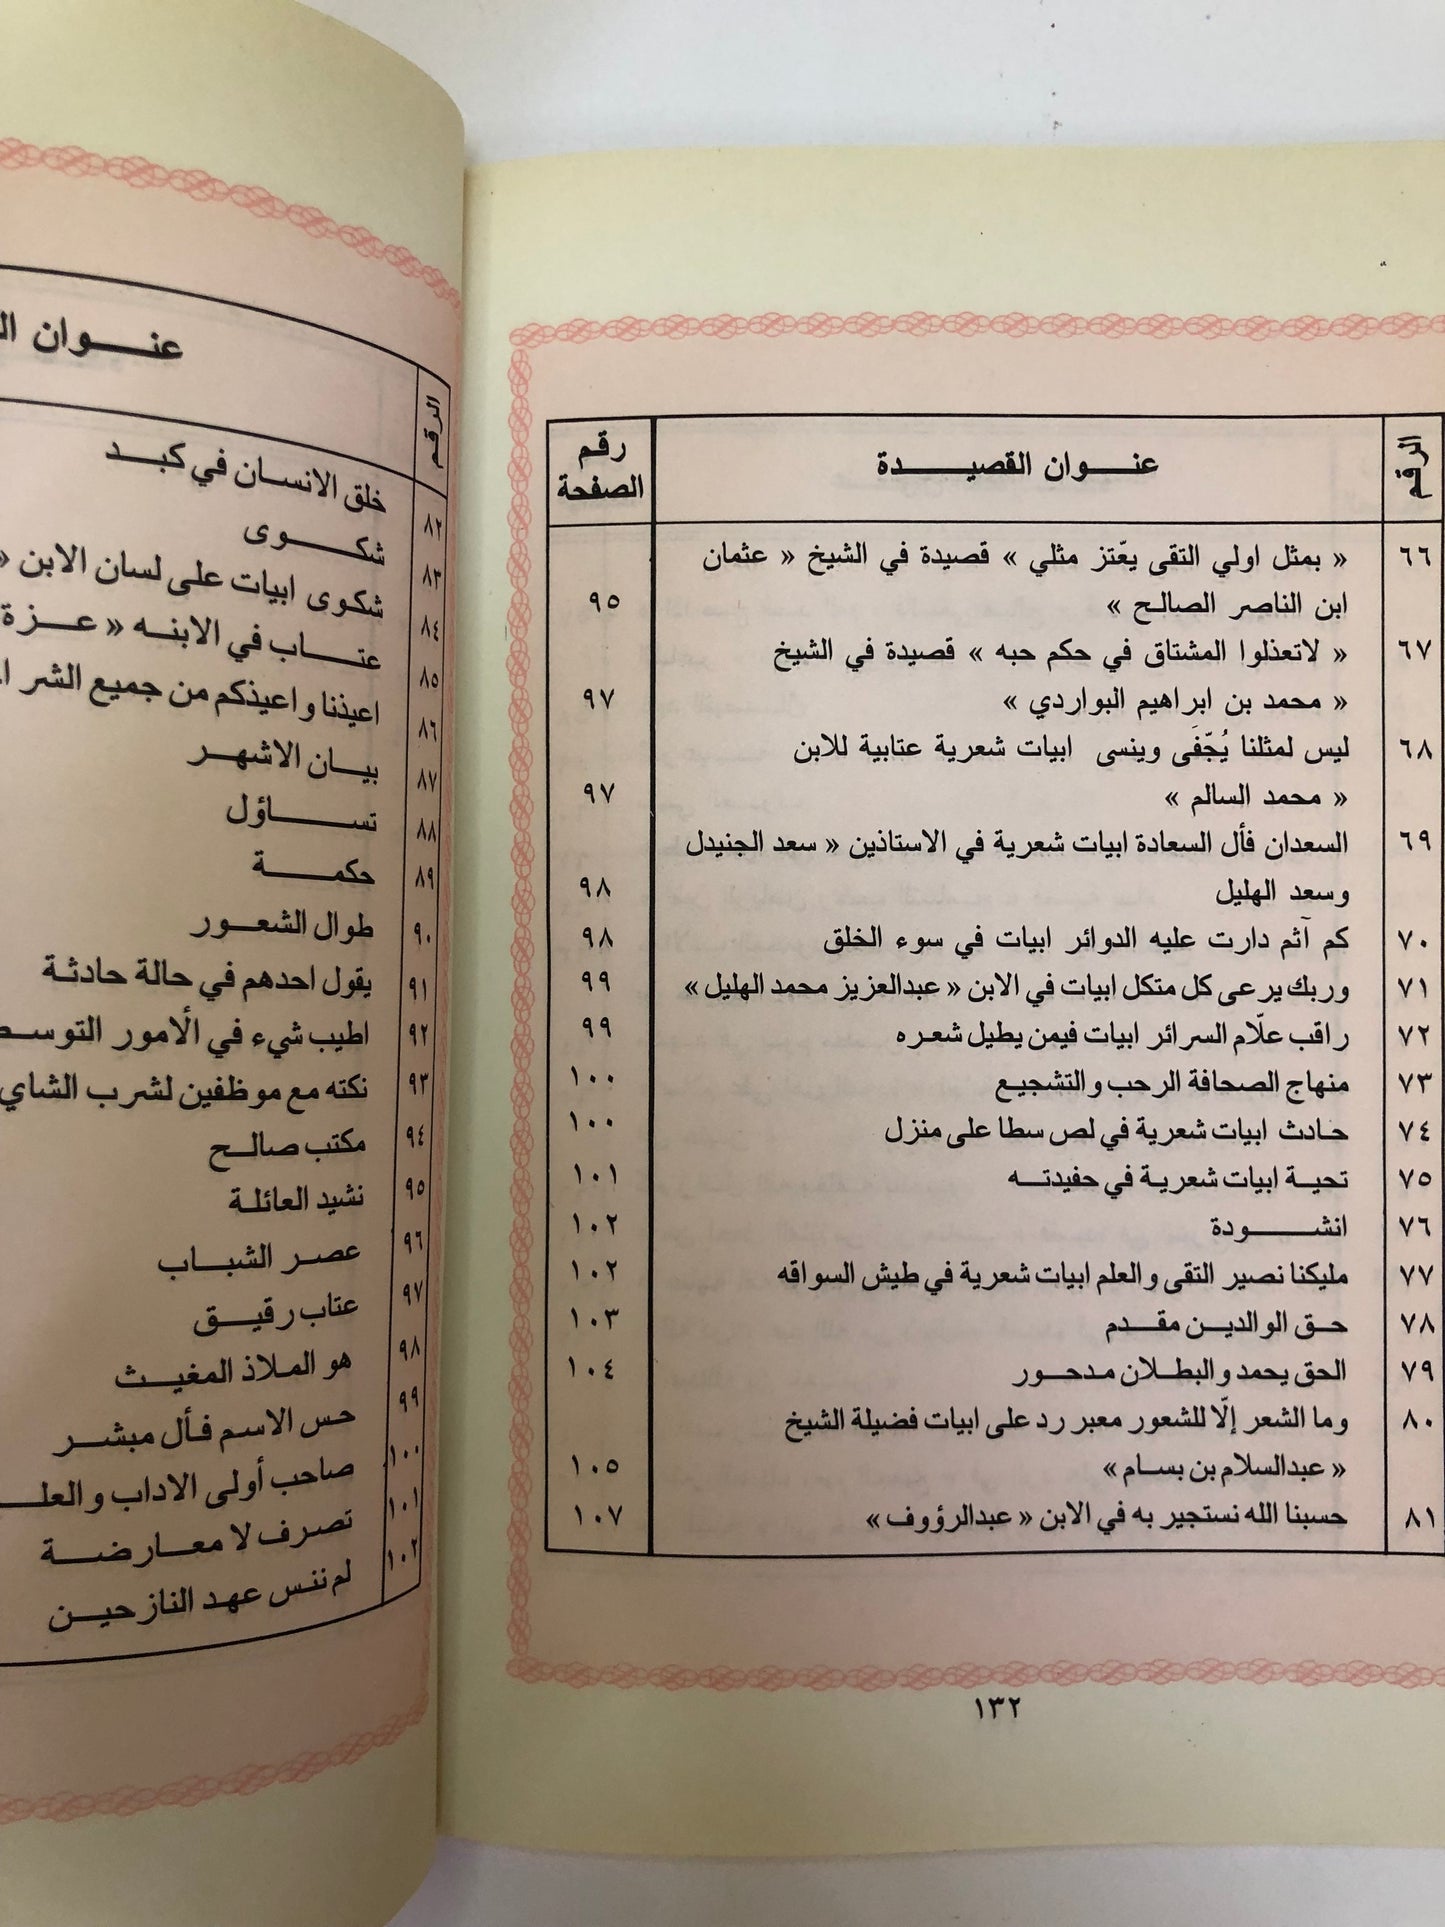 الرقم عنـــوان القصيـــــدة رقم الصفحة
٦٦ « بمثل اولي التقى يعّتز مثلي » قصيدة في الشيخ « عثمان
ابن الناصر الصالح » ٩٥
٦٧ « لاتعذلوا المشتاق في حكم حبه » قصيدة في الشيخ
« محمد بن ابراهيم البواردي » ٩٧
٦٨ ليس لمثلنا يُجّفَى وينسى ابيات شعرية عتابية للابن
« محمد السالم » ٩٧
٦٩ السعدان فأل السعادة ابيات شعرية في الاستاذين « سعد الجنيدل
وسعد الهليل ٩٨
٧٠ كم آثم دارت عليه الدوائر ابيات في سوء الخلق ٩٨
٧١ وربك يرعى كل متكل ابيات في الابن « عبدالعزيز محمد الهليل » ٩٩
٧٢ راقب علّام السرائر ابيات فيمن يطيل شعره ٩٩
٧٣ منهاج الصحافة الرحب والتشجيع ١٠٠
٧٤ حادث ابيات شعرية في لص سطا على منزل ١٠٠
٧٥ تحيـة ابيات شعرية في حفيدتـه ١٠١
٧٦ انشـــــودة ١٠٢
٧٧ مليكنا نصير التقى والعلم ابيات شعرية في طيش السواقه ١٠٢
٧٨ حـق الوالديـن مقـدم ١٠٣
٧٩ الحق يحمد والبطـلان مـدحـور ١٠٤
٨٠ وما الشعر إلّا للشعور معبر رد على ابيات فضيلة الشيخ
« عبدالسلام بن بسام » ١٠٥
٨١ حسبنا الله نستجير به في الابن « عبدالرؤوف » ١٠٧
١٣٢
الرقم عنـــوان
٨٢ خلق الانسـان في كبـد
٨٣ شكـــوى
٨٤ شكوى ابيات على لسان الابن «
٨٥ عتـــاب في الابنـه « عـــزة
٨٦ اعيذنا واعيذكم من جميع الشر
٨٧ بيـان الاشهـر
٨٨ تســـاؤل
٨٩ حكمـــة
٩٠ طوال الشعـور
٩١ يقول احدهم في حالة حادثـة
٩٢ اطيب شيء في الامور
٩٣ نكته مع موظفين لشرب الشاي
٩٤ مكتب صالـح
٩٥ نشيد العائلة
٩٦ عصـر الشبـاب
٩٧ عتاب رقيـق
٩٨ هو المـلاذ المغيـث
٩٩ حس الاسم فـأل مبشـر
١٠٠ صاحب أولى الاداب
١٠١ تصرف لا معـارضـة
١٠٢ لم ننس عهـد النازحيـن